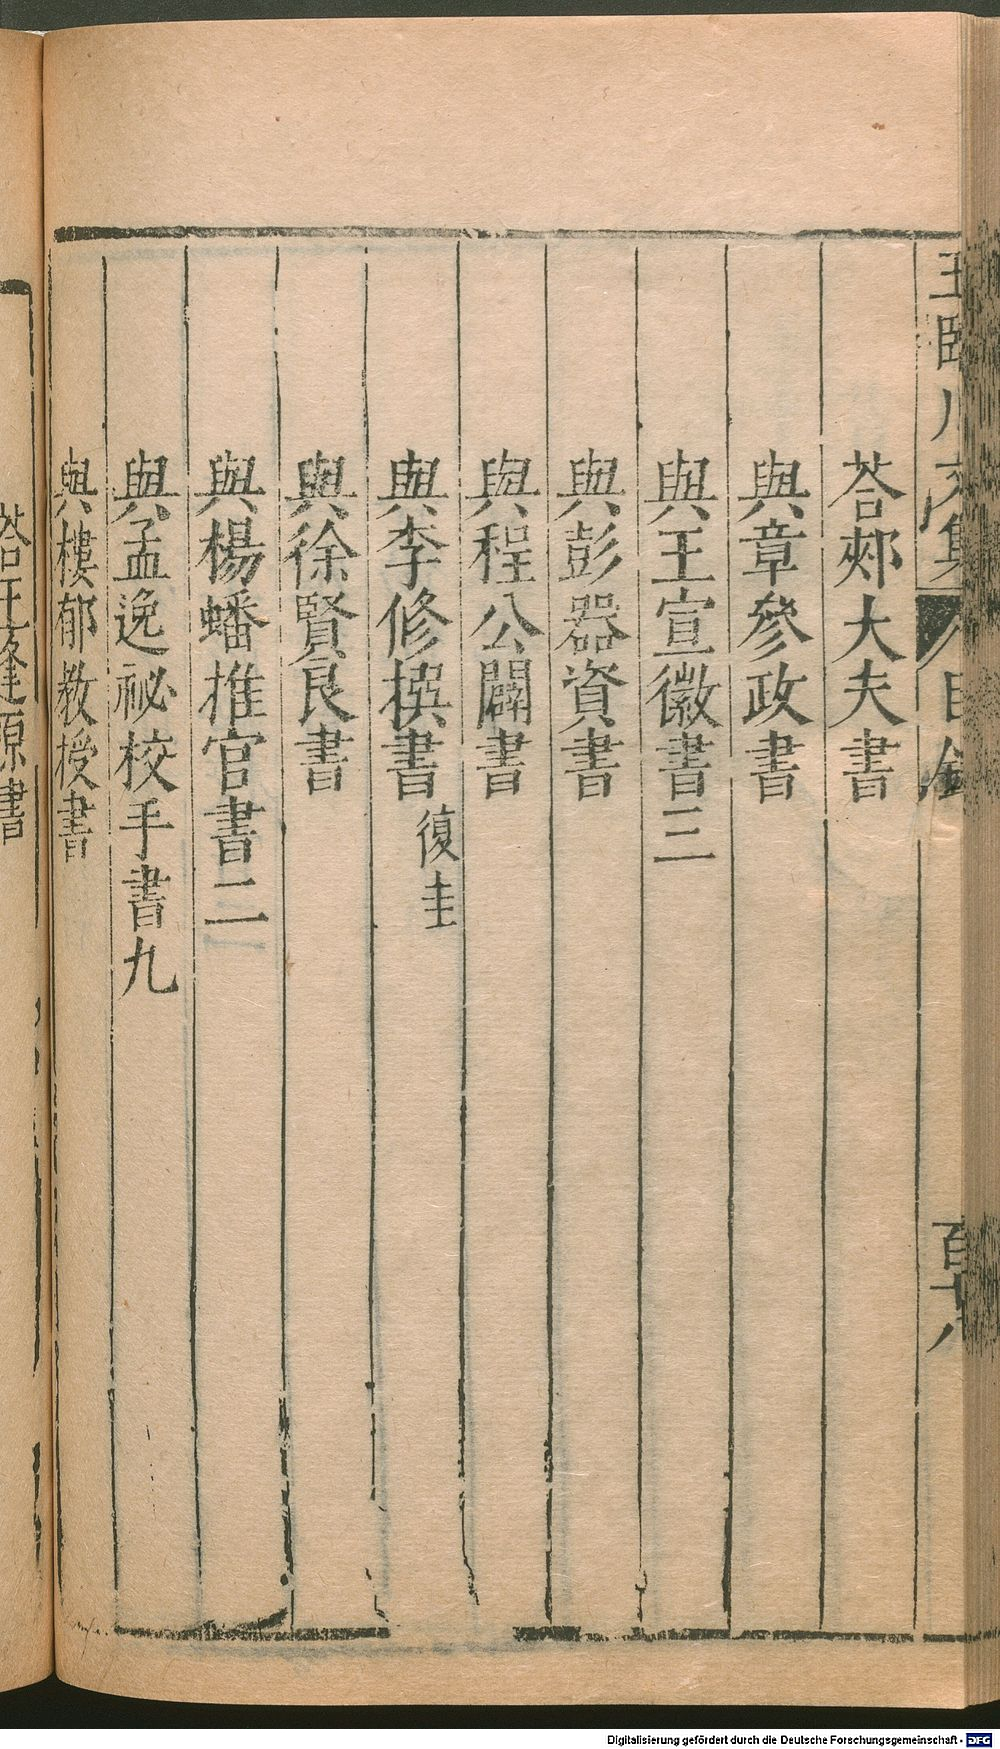 王臨川文集 目錄 百廿八
荅郟大夫書
與章參政書
與王宣徽書三
與彭器資書
與程公闢書
與李修撰書 復圭
與徐賢良書
與楊蟠推官書二
與孟逸祕校手書九
與樓郁教授書
荅王逢原書
Digitalisierung gefördert durch die Deutsche Forschungsgemeinschaft - DFG